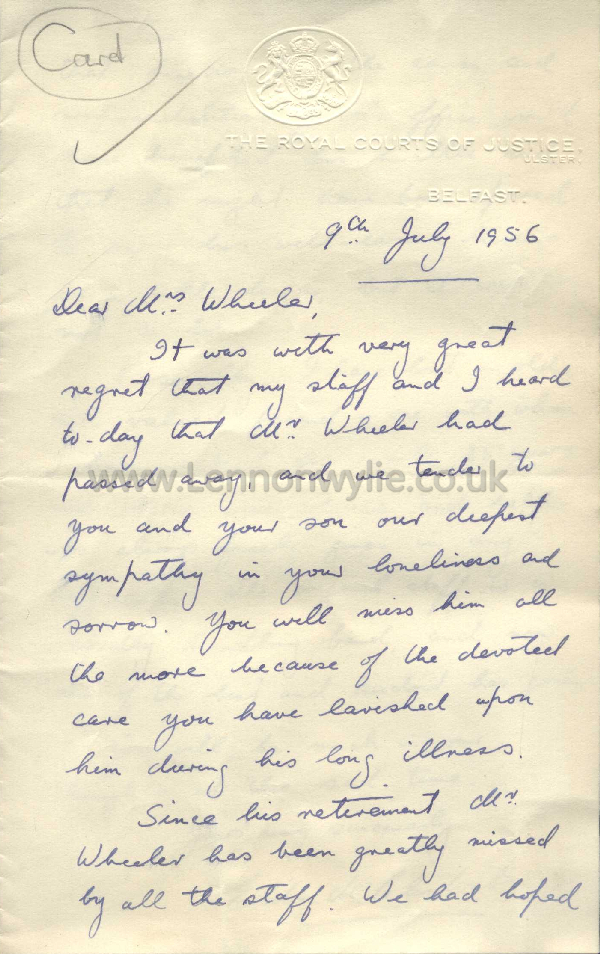 Card
THE ROYAL COURTS OF JUSTICE,
ULSTER.
BELFAST.
9th July 1956
Dear Mrs Wheeler,
It was with very great
regret that my staff and I heard
to-day that Mr. Wheeler had
passed away, and we tender to
you and your son our deepest
sympathy in your loneliness and
sorrow. You will miss him all
the more because of the devoted
care you have lavished upon
him during his long illness.
Since his retirement Mr.
Wheeler has been greatly missed
by all the staff. We had hoped
www.Lennonwylie.co.uk